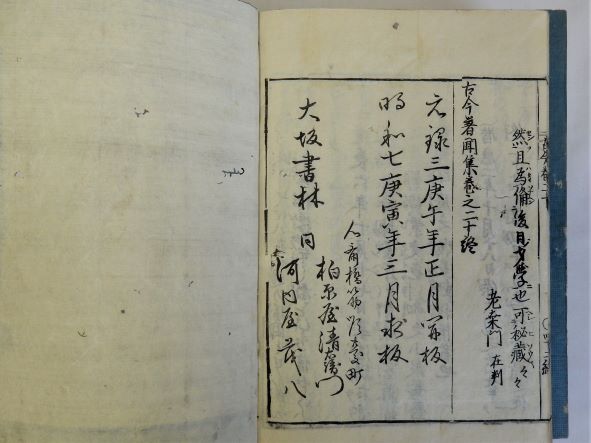 然且為備後日才学也可秘蔵々々
老桑門 在判
古今著聞集巻之二十終
元禄三庚午年正月開板
明和七庚寅年三月求板
心斎橋筋順慶町
大坂書林 同 柏原屋清右衛門
河内屋茂八